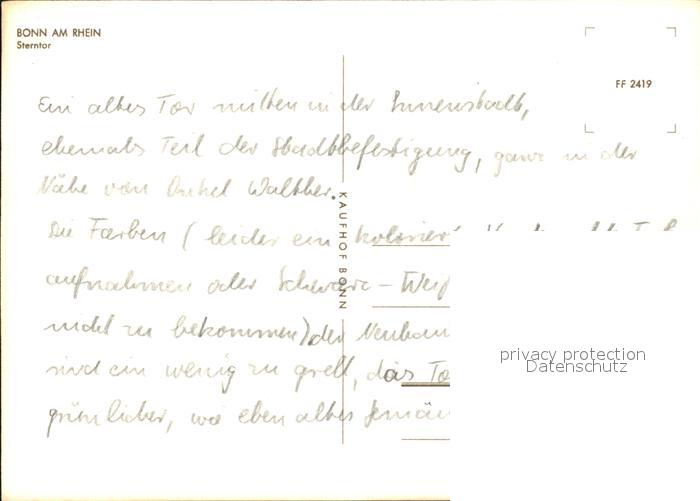 BONN AM RHEIN
Sterntor
FF 2419
Ein altes Tor mitten in der Innenstadt,
ehemals Teil der Stadtbefestigung, ganz in der
Nähe von Onkel Walther.
Die Farben (leider ein
aufnahmen oder Schwarz-Weiß
nicht zu bekommen) der Neubau
sind ein wenig zu grell, das To
grünlicher, wie eben altes Gemäu
KAUFHOF BONN
privacy protection
Datenschutz